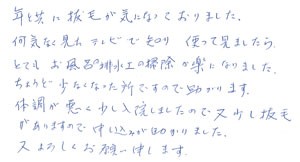 年と共に抜毛が気になっておりました。
何気なく見たテレビで知り 使って見ましたら、
とてもお風呂の排水口の掃除が楽になりました。
ちょうど少なくなった所ですので助かります。
体調が悪く少し入院しましたので又少し抜毛
がありますので申し込みが助かりました。
又よろしくお願い申します。